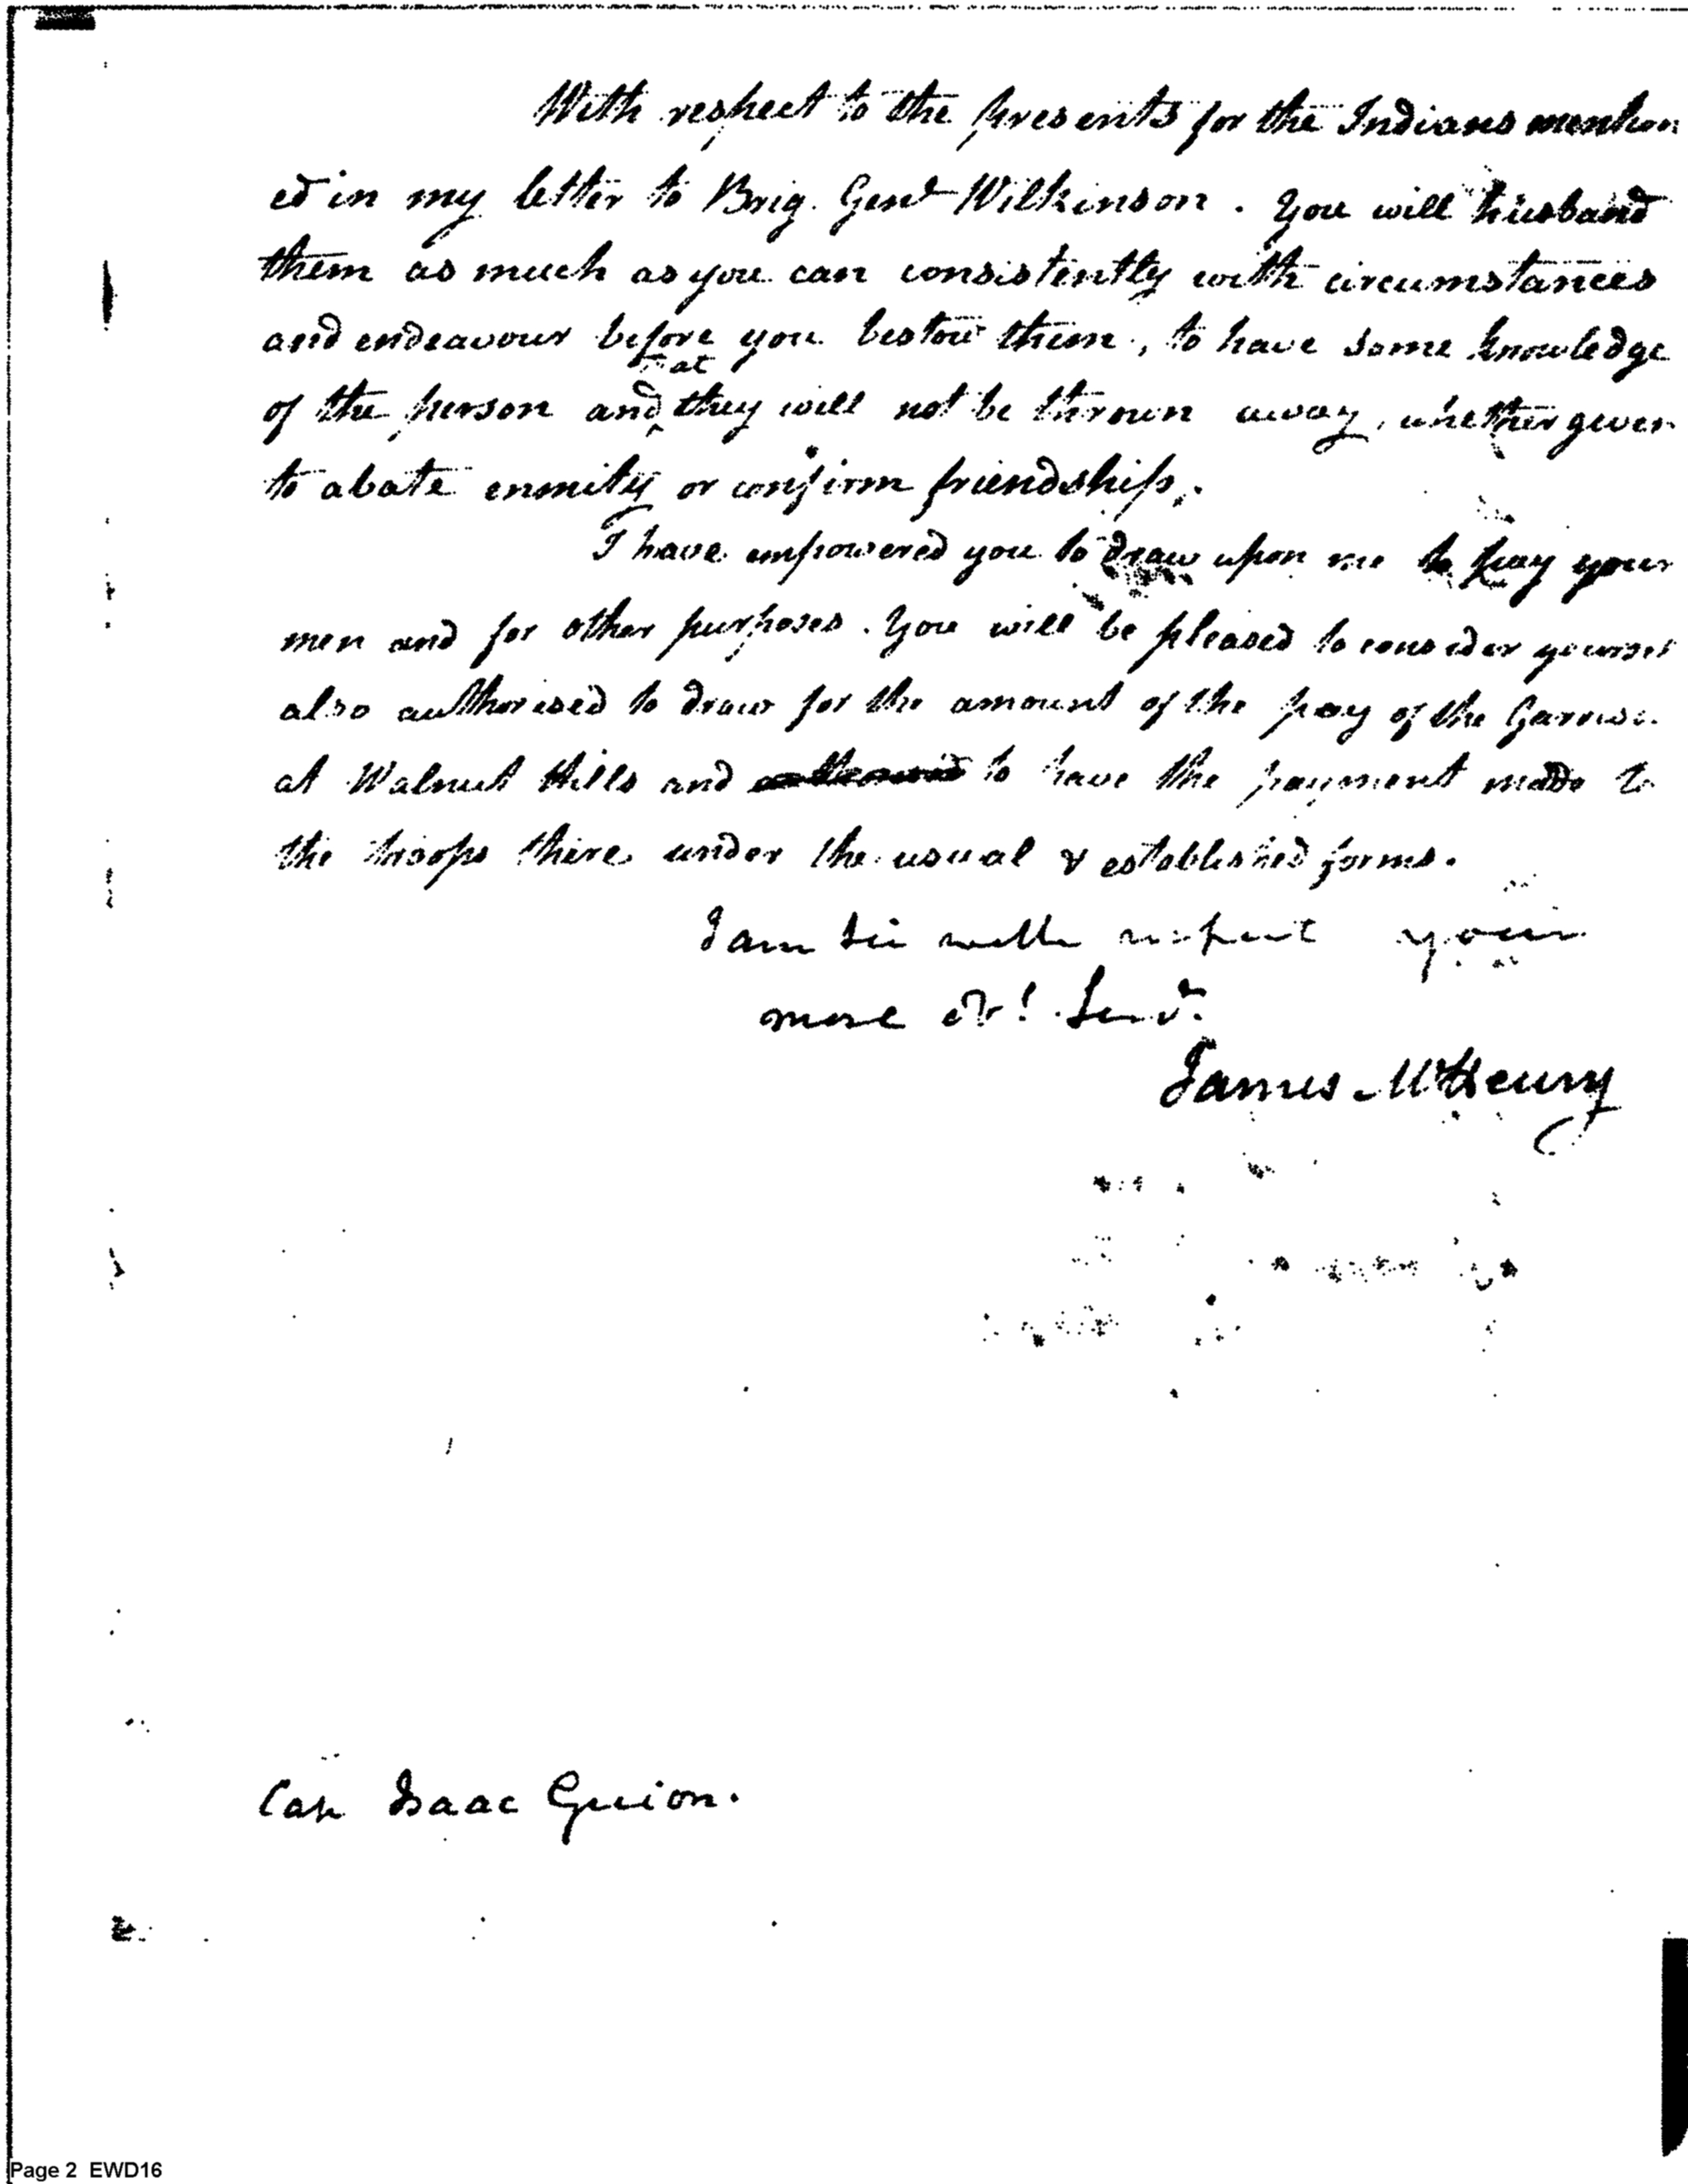 With respect to the presents for the Indians mention
ed in my letter to Brig. Genl Wilkinson. You will husband
them as much as you can consistently with circumstances
and endeavour before you bestow them, to have some knowledge
of the person and that they will not be thrown away, whether given
to abate enmity or confirm friendship.
I have empowered you to draw upon me to pay your
men and for other purposes. You will be pleased to consider yourself
also authorised to draw for the amount of the pay of the Garrison
at Walnut Hills and to have the payment made to
the troops there under the usual & established forms.
I am Sir with respect your
most obt. Servt.
James McHenry
Cap Isaac Guion.
Page 2 EWD16